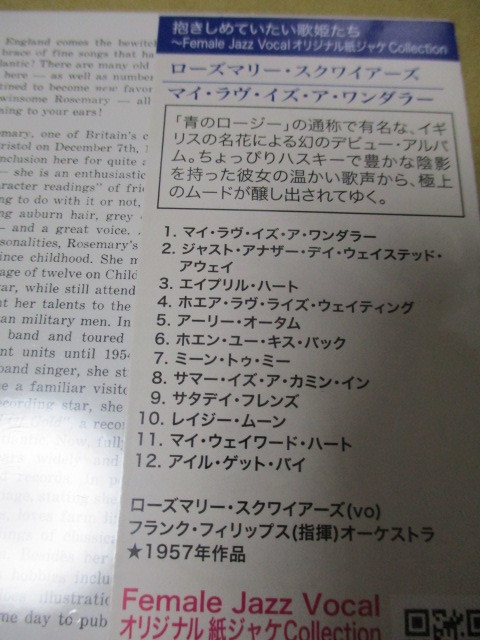 抱きしめていたい歌姫たち
～Female Jazz Vocalオリジナル紙ジャケCollection
ローズマリー・スクワイアーズ
マイ・ラヴ・イズ・ア・ワンダラー
「青のロージー」の通称で有名な、イギ
リスの名花による幻のデビュー・アルバ
ム。ちょっぴりハスキーで豊かな陰影
を持った彼女の温かい歌声から、極上
のムードが醸し出されてゆく。
1. マイ・ラヴ・イズ・ア・ワンダラー
2. ジャスト・アナザー・デイ・ウェイステッド・
アウェイ
3. エイプリル・ハート
4. ホエア・ラヴ・ライズ・ウェイティング
5. アーリー・オータム
6. ホエン・ユー・キス・バック
7. ミーン・トゥ・ミー
8. サマー・イズ・ア・カミン・イン
9. サタデイ・フレンズ
10. レイジー・ムーン
11. マイ・ウェイワード・ハート
12. アイル・ゲット・バイ
ローズマリー・スクワイアーズ(vo)
フランク・フィリップス(指揮)オーケストラ
★1957年作品
Female Jazz Vocal
オリジナル紙ジャケCollection
England comes the bewitc
brace of fine songs that ha
lantic! There are many old
here — as well as number
tined to become new favor
winsome Rosemary — all
ning to your ears!
mary, one of Britain's c
ristol on December 7th,
nclusion here for quite a
— she is an enthusiastic
aracter readings" of frie
ng to do with it or not,
ng auburn hair, grey
— and a great voice.
sonalities, Rosemary's
ince childhood. She m
age of twelve on Child
ar, while still attend
ut her talents to the
an military men. In
band and toured
nt units until 1954
band singer, she st
e a familiar visito
ecording star, she
a recor
fully
her
inclu
illustratio
me day to pub